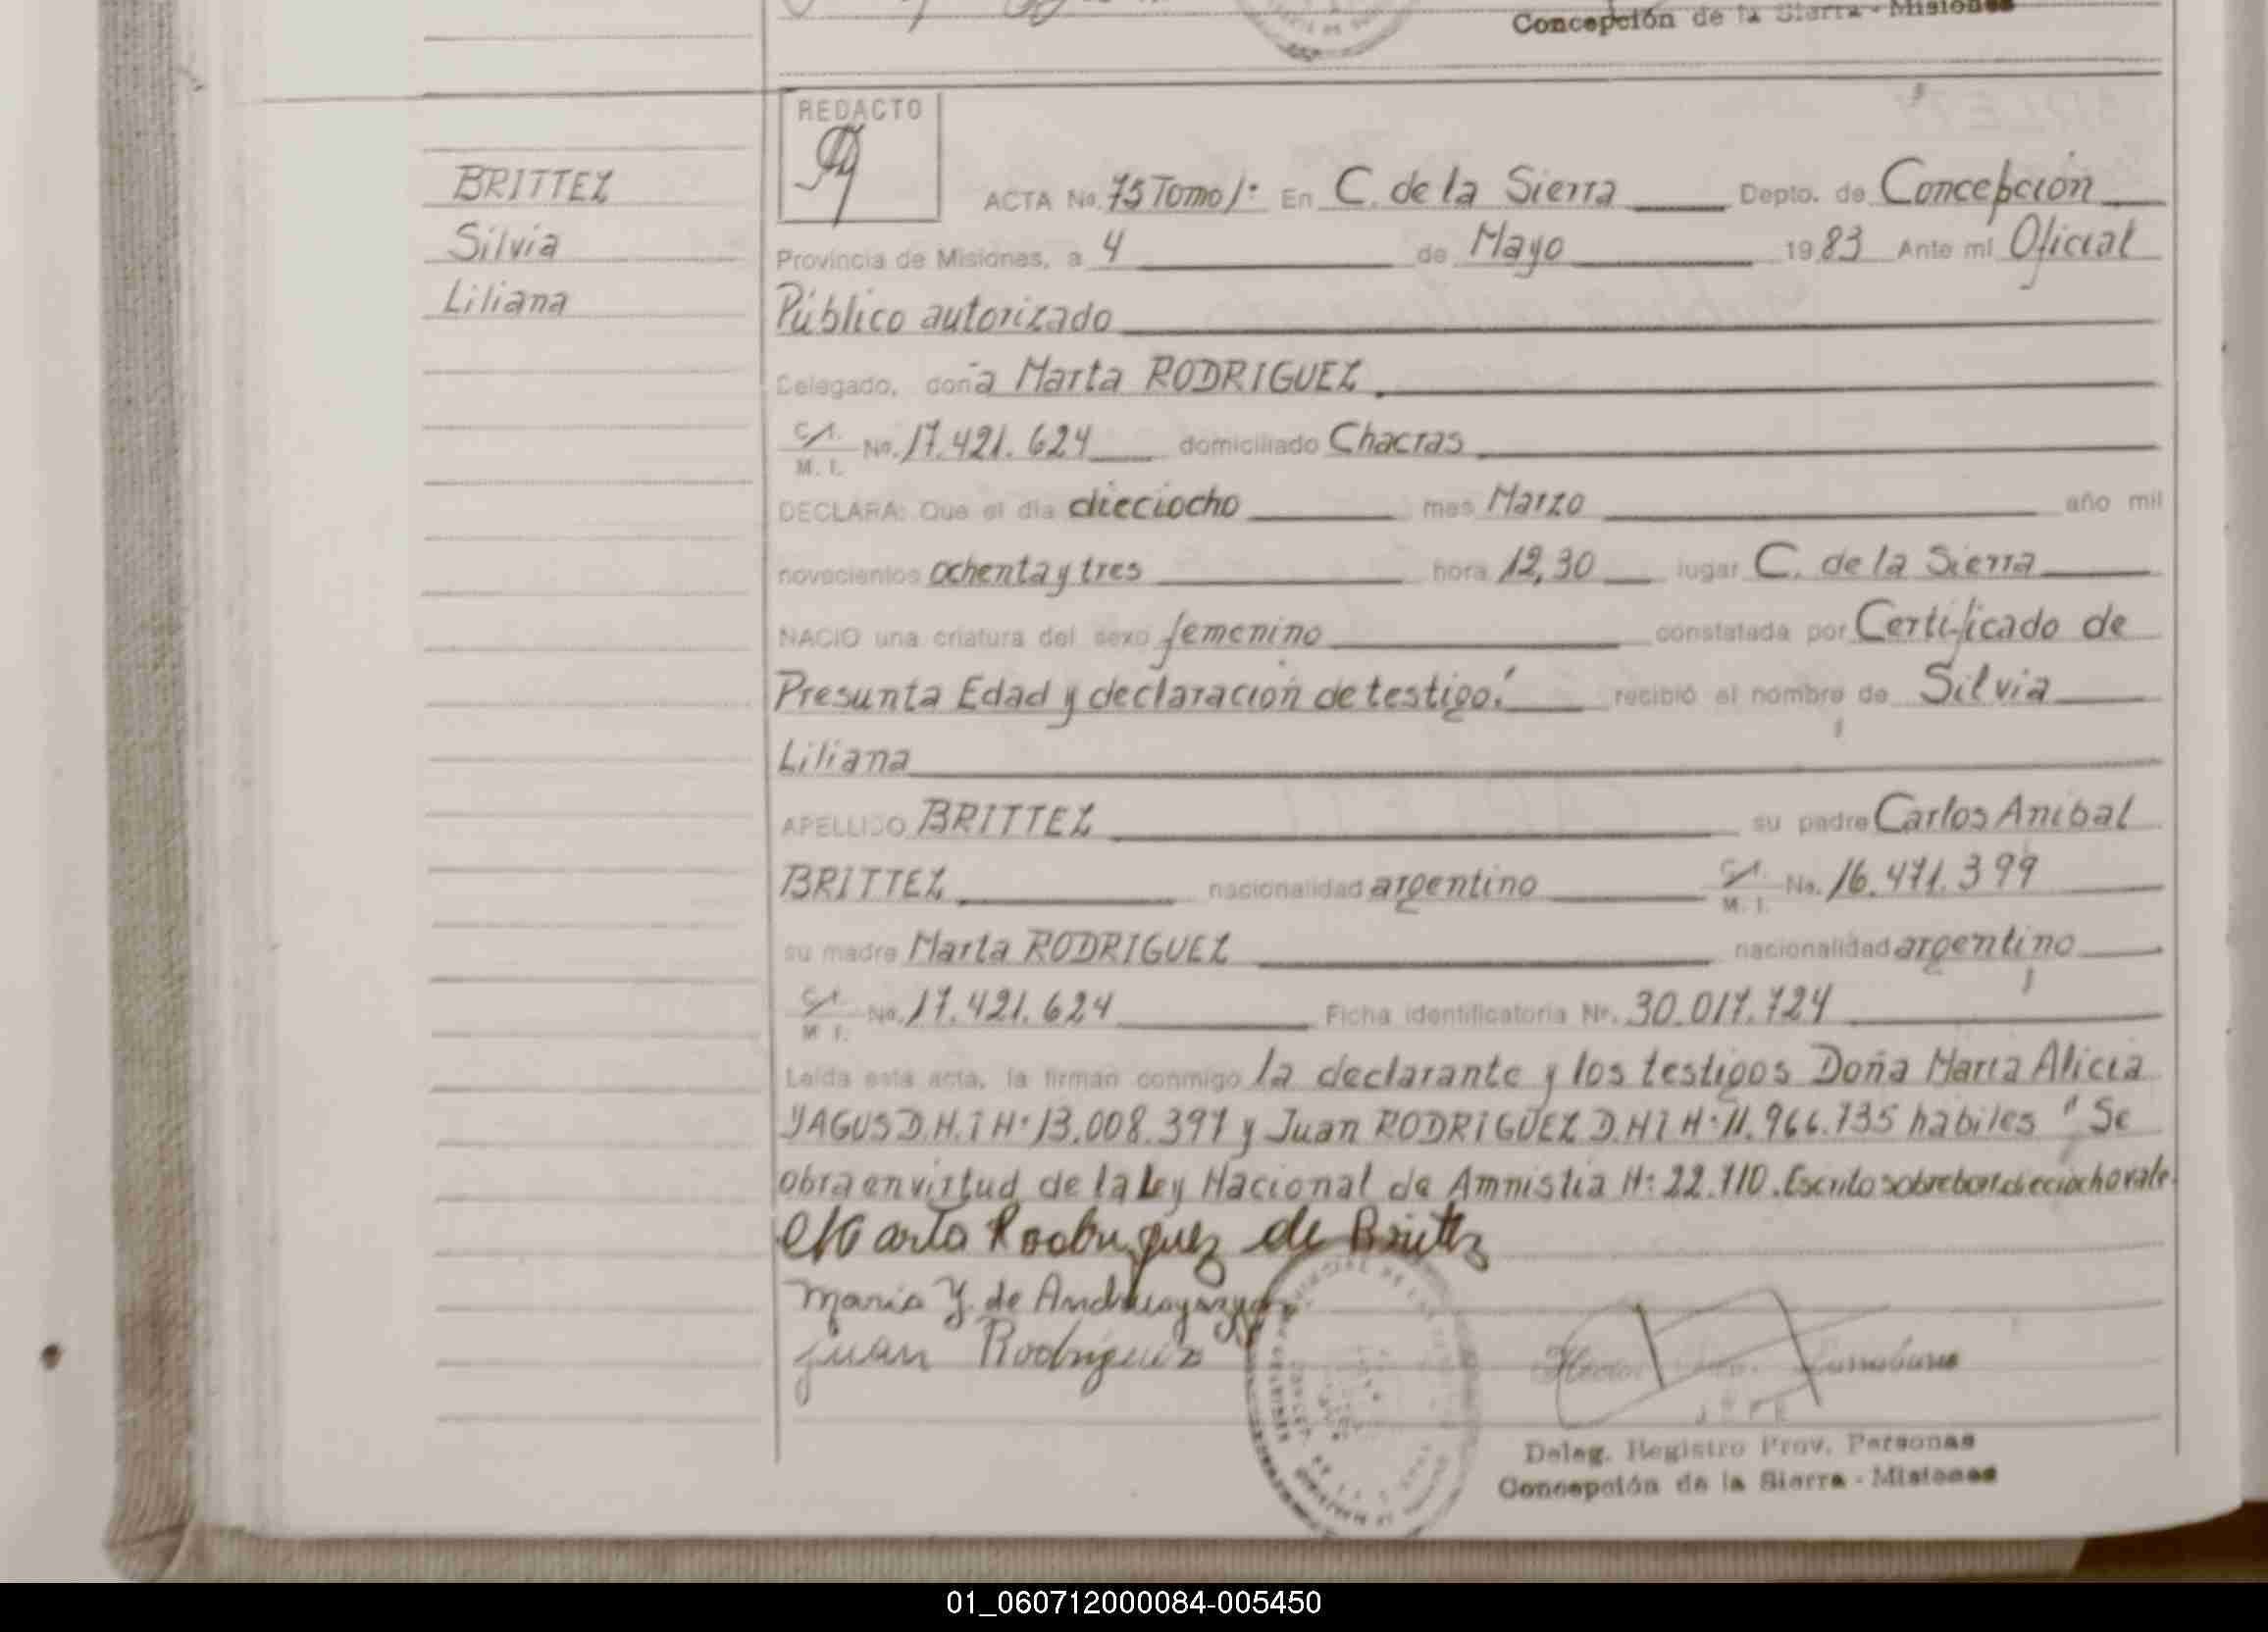 Concepción de la Sierra - Misiones
BRITTEZ
Silvia
Liliana
REDACTO
ACTA No. 75 Tomo 1º En C. de la Sierra Depto. de Concepción
Provincia de Misiones, a 4 de Mayo 1983 Ante mí Oficial
Público autorizado
Delegado, doña Marta RODRIGUEZ
C/I. M. I. No. 17.421.624 domiciliado Chacras
DECLARA: Que el día dieciocho mes Marzo año mil
novecientos ochenta y tres hora 12,30 lugar C. de la Sierra
NACIO una criatura del sexo femenino constatada por Certificado de
Presunta Edad y declaración de testigo. recibió el nombre de Silvia
Liliana
APELLIDO BRITTEZ su padre Carlos Anibal
BRITTEZ nacionalidad argentino C/I. M. I. No. 16.471.399
su madre Marta RODRIGUEZ nacionalidad argentino
C/I. M. I. No. 17.421.624 Ficha identificatoria Nr. 30.017.724
Leída esta acta, la firman conmigo la declarante y los testigos Doña Maria Alicia
YAGUS D.N.I Nº 13.008.397 y Juan RODRIGUEZ D.N.I Nº 11.966.735 habiles "Se
obra en virtud de la Ley Nacional de Amnistia Nº 22.710. Escrito sobre borr. dieciocho vale.
Marta Rodriguez de Brittez
Maria Y. de
Juan Rodriguez
Deleg. Registro Prov. Personas
Concepción de la Sierra - Misiones
01_060712000084-005450